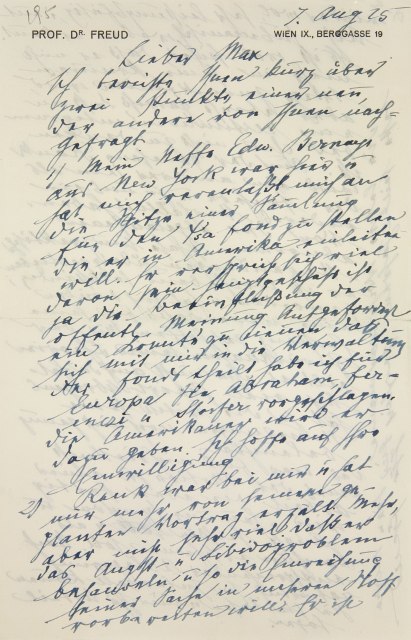 7. Aug 25
PROF. DR. FREUD
WIEN IX., BERGGASSE 19
Lieber Max
Ich berichte Ihnen kurz über
zwei Punkte, einer neu
der andere von Ihnen nach-
gefragt
1) Mein Neffe Edw. Bernays
aus New York war hier u
hat mich veranlaßt mich an
die Spitze einer Sammlung
für den fond zu stellen
die er in Amerika einleiten
will. Er verspricht sich viel
davon, sein Hauptgeschäft ist
ja die Beeinflußung der
öffentl. Meinung. Aufgefordert
ein Komite zu nennen, das
sich mit mir in die Verwaltung
des fonds theilt habe ich für
Europa Sie, Abraham, Fer-
enczi u Storfer vorgeschlagen,
die Amerikaner wird er
dazu geben. Ich hoffe auf Ihre
Einwilligung
2) Rank war bei mir u hat
mir mehr von seinem ge-
planten Vortrag erzält. Mehr,
aber nicht sehr viel, daß er
das Angst- u Libidoproblem
behandeln, u so die Einreihung
seiner Sache in unseren Stoff
vorbereiten will. Er ist